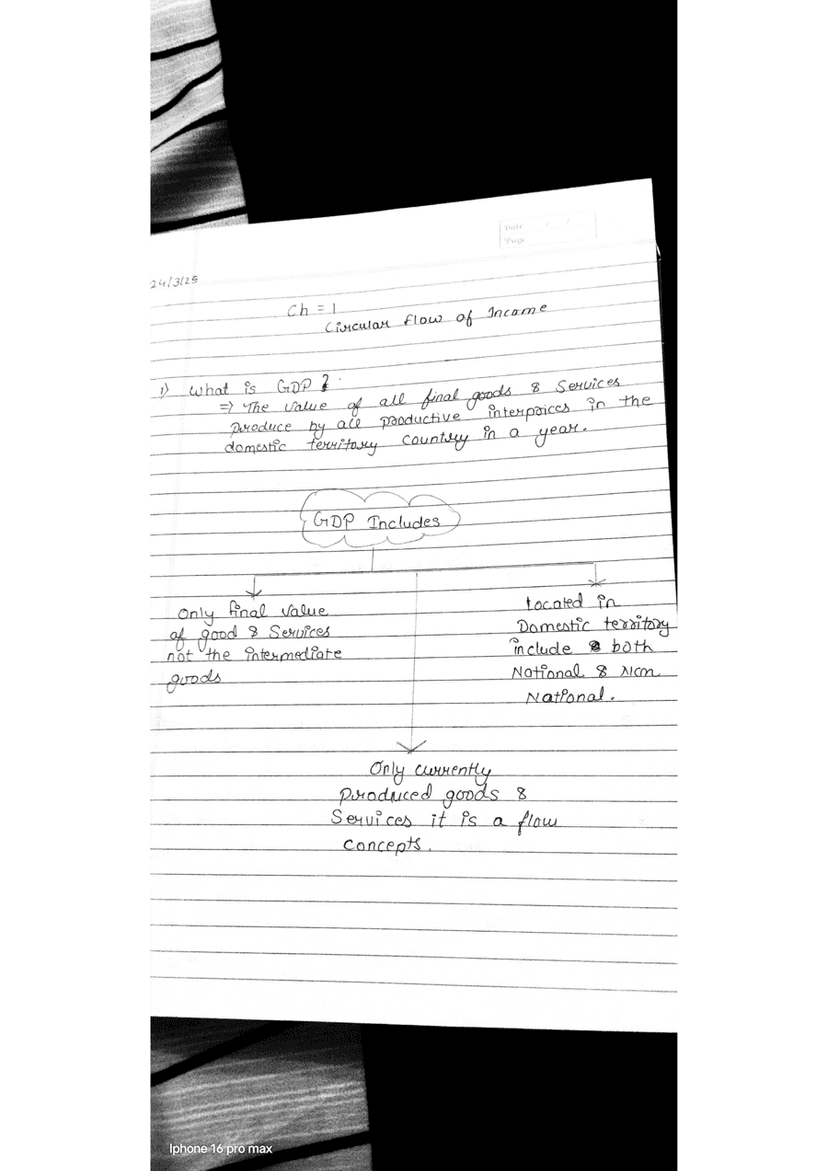 Date / /
Page
24/3/25
Ch = 1
Circular flow of Income
1) What is GDP ?
⇒ The value of all final goods & Services
produce by all productive interpoices in the
domestic territory country in a year.
GDP Includes
Only final value
of good & Services
not the intermediate
goods
Located in
Domestic territory
include & both
National & Non
National.
Only currently
produced goods &
Services it is a flow
concepts.
Iphone 16 pro max